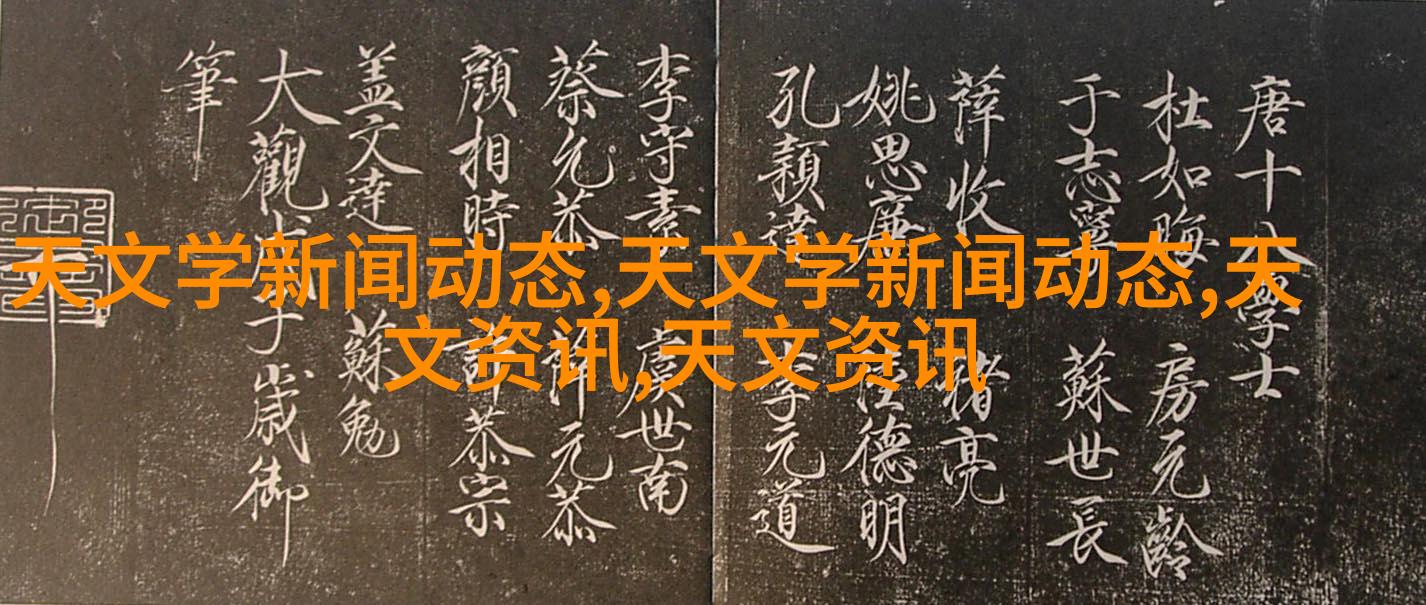 天文学新闻动态,天文学新闻动态,天
文资讯,天文资讯
唐十八學士
杜如晦 房元齡
于志寧 蘇世長
薛收 褚亮
姚思廉 陸德明
孔穎達 李元道
李守素 虞世南
蔡允恭 許元恭
顏相時 許恭宗
盖文達 蘇勉
大觀戊子歲御
筆